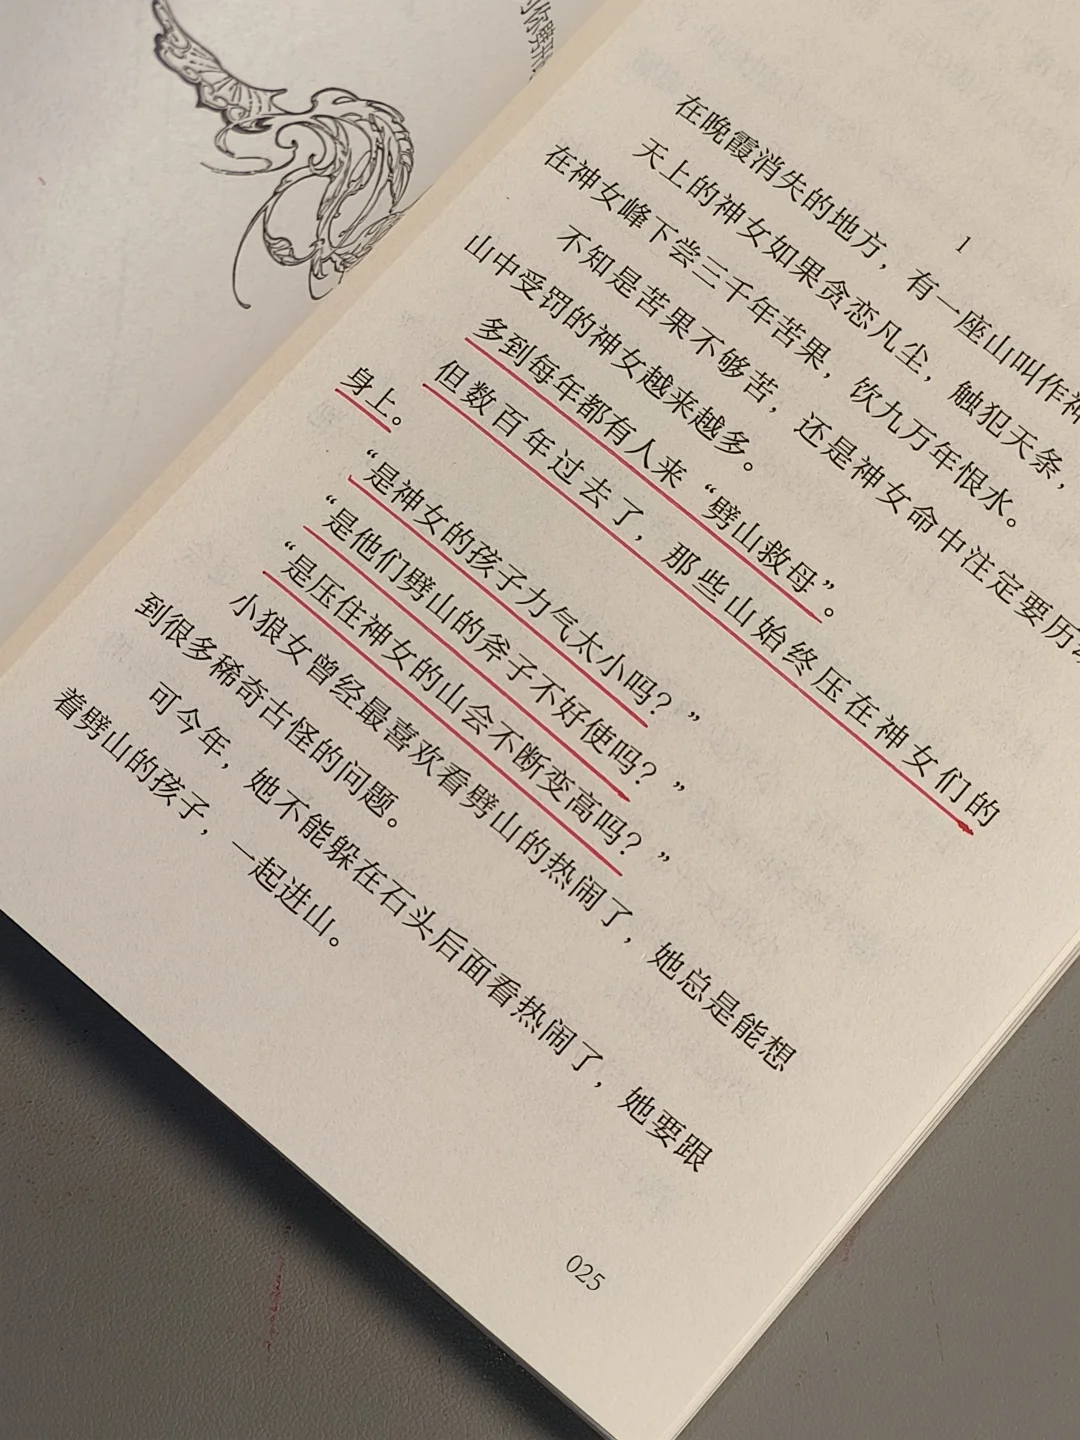 你劈开
1
在晚霞消失的地方，有一座山叫作神
天上的神女如果贪恋凡尘，触犯天条，
在神女峰下尝三千年苦果，饮九万年恨水。
不知是苦果不够苦，还是神女命中注定要历
山中受罚的神女越来越多。
多到每年都有人来“劈山救母”。
但数百年过去了，那些山始终压在神女们的
身上。
“是神女的孩子力气太小吗？”
“是他们劈山的斧子不好使吗？”
“是压住神女的山会不断变高吗？”
小狼女曾经最喜欢看劈山的热闹了，她总是能想
到很多稀奇古怪的问题。
可今年，她不能躲在石头后面看热闹了，她要跟
着劈山的孩子，一起进山。
025